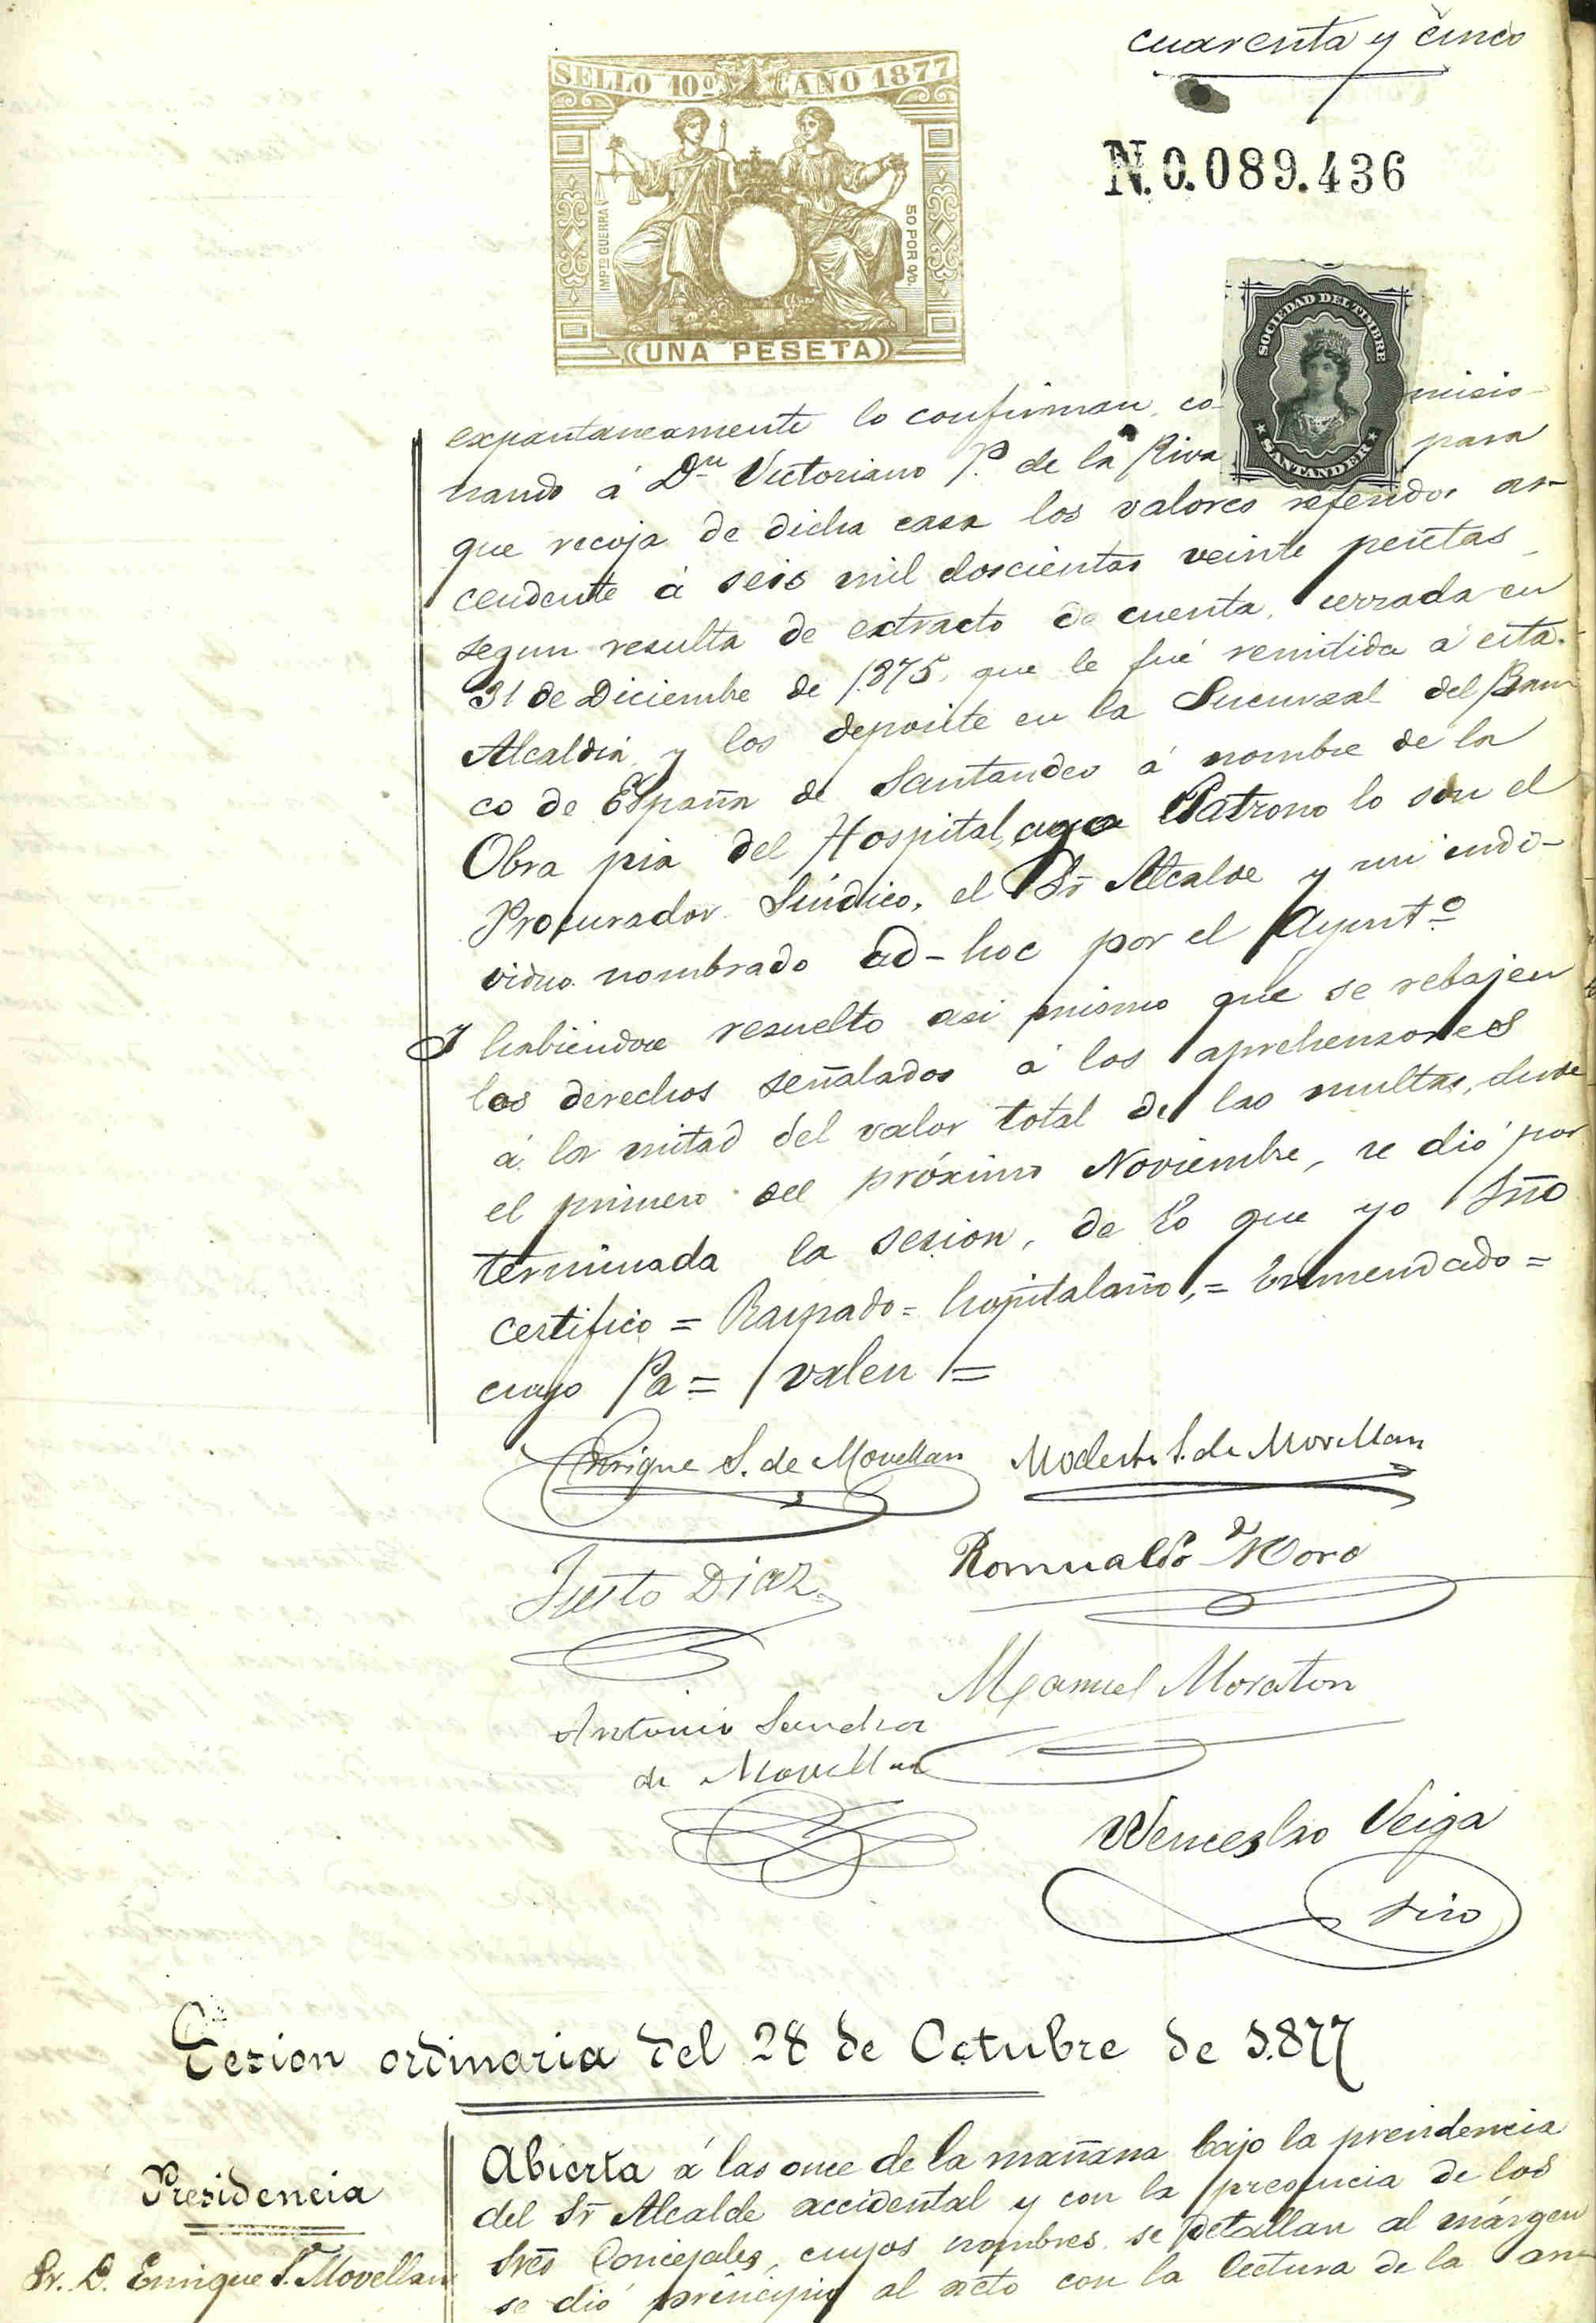 cuarenta y cinco
SELLO 10º AÑO 1877
N.0.089.436
IMPTO GUERRA
50 POR 0/0.
UNA PESETA
SOCIEDAD DEL TIMBRE
SANTANDER
expantaneamente lo confirman, co- misio-
nando á Dn Victoriano P. de la Riva para
que recoja de dicha casa los valores referidos as-
cendente á seis mil doscientas veinte pesetas
segun resulta de extracto de cuenta, cerrada en
31 de Diciembre de 1.875, que le fué remitida á esta
Alcaldia, y los deposite en la Sucursal del Ban-
co de España de Santander á nombre de la
Obra pia del Hospital, cuyo Patrono lo son el
Procurador Sindico, el Sr Alcalde y un indi-
viduo nombrado ad-hoc por el Ayuntº
Y habiendose resuelto asi mismo que se rebajen
los derechos señalados á los aprehensores
á la mitad del valor total de las multas, desde
el primero del próximo Noviembre, se dió por
terminada la sesion, de lo que yo Srio
certifico = Raspado = hospitalario, = Enmendado =
cuyo Pa = valen =
Enrique S. de Movellan Modesto S. de Movellan
Justo Diaz Romualdo Moro
Manuel Moraton
Antonio Sanchez
de Movellan
Wenceslao Veiga
Srio
Sesion ordinaria del 28 de Octubre de 1.877
Presidencia
Sr. D. Enrique S. Movellan
Abierta á las once de la mañana bajo la presidencia
del Sr Alcalde accidental y con la presencia de los
Sres Concejales, cuyos nombres se detallan al márgen
se dió principio al acto con la lectura de la an-